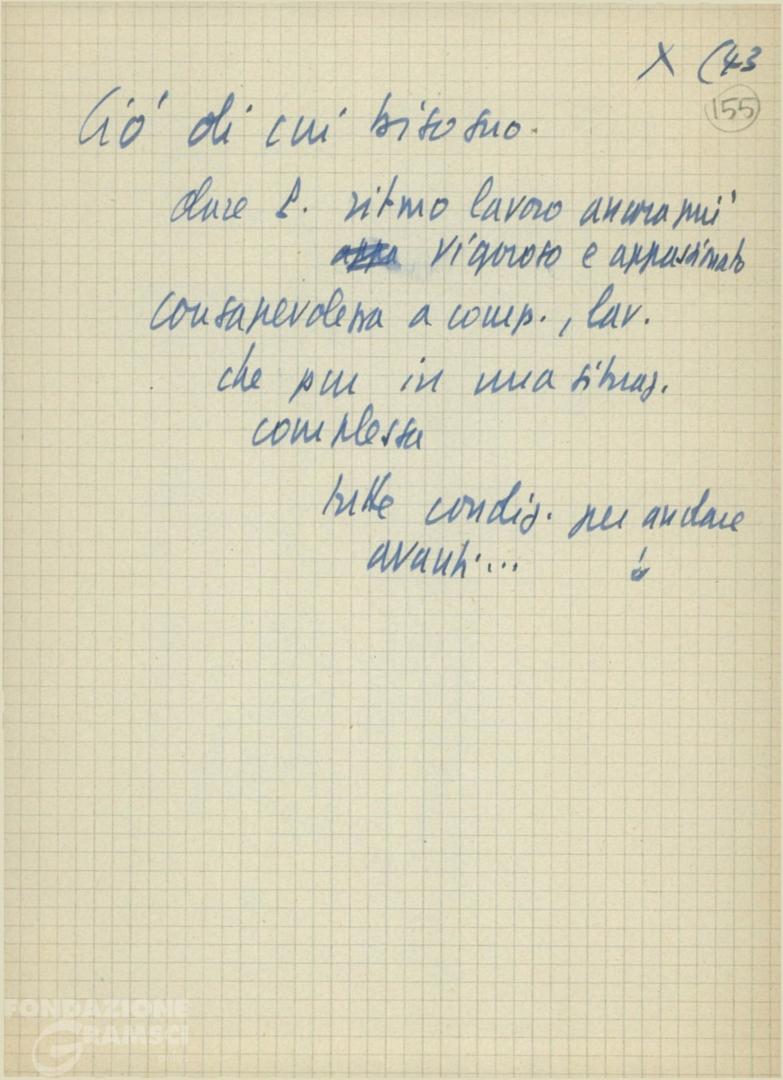 X (43
155
Ciò di cui bisogno.
dare P. ritmo lavoro ancora più
vigoroso e appassionato
consapevolezza a comp., lav.
che pur in una situaz.
complessa
tutte condiz. per andare
avanti...
FONDAZIONE
GRAMSCI